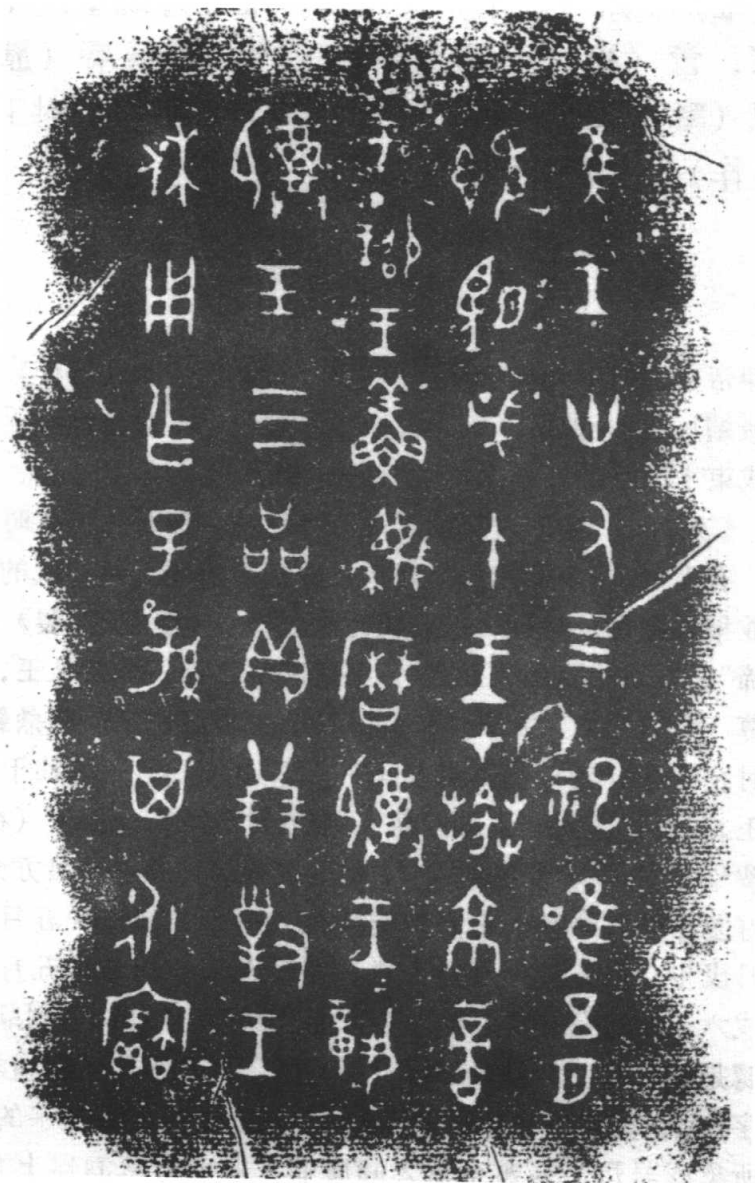 隹王卅又四祀唯五月
既望戊午王才𦭘京啻
于卲王鮮蔑曆祼王
祼玉三品貝廿朋對王
休用乍子孫其永寶